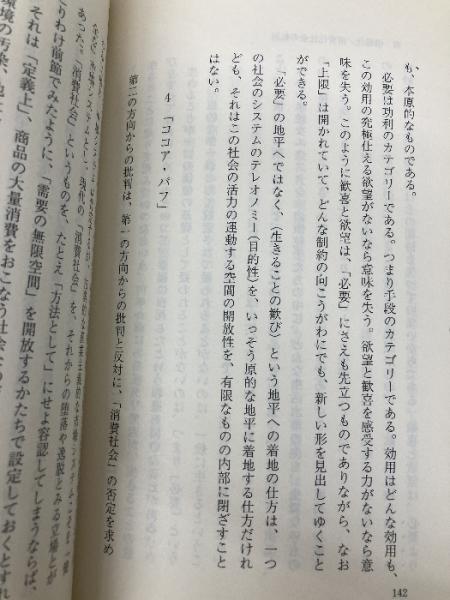 も、本原的なものである。
必要は功利のカテゴリーである。つまり手段のカテゴリーである。効用はどんな効用も、
この効用の究極仕える欲望がないなら意味を失う。欲望と歓喜を感受する力がないなら意
味を失う。このように歓喜と欲望は、「必要」にさえも先立つものでありながら、なお
「上限」は開かれていて、どんな制約の向こうがわにでも、新しい形を見出してゆくこと
ができる。
「必要」の地平へではなく、〈生きることの歓び〉という地平への着地の仕方は、一つ
の社会のシステムのテレオノミー(目的性)を、いっそう原的な地平に着地する仕方だけれ
ども、それはこの社会の活力の運動する空間の開放性を、有限なものの内部に閉ざすこと
はない。
4 「ココア・パフ」
第二の方向からの批判は、第一の方向からの批判と反対に、「消費社会」の否定を求め
「消費社会」というものを、たとえ「方法として」にせよ容認してしまうならば、
とりわけ前節でみたように、「需要の無限空間」を開放するかたちで設定しておくとすれ
それは「定義上」、商品の大量消費をおこなう社会
環境の汚染、
142